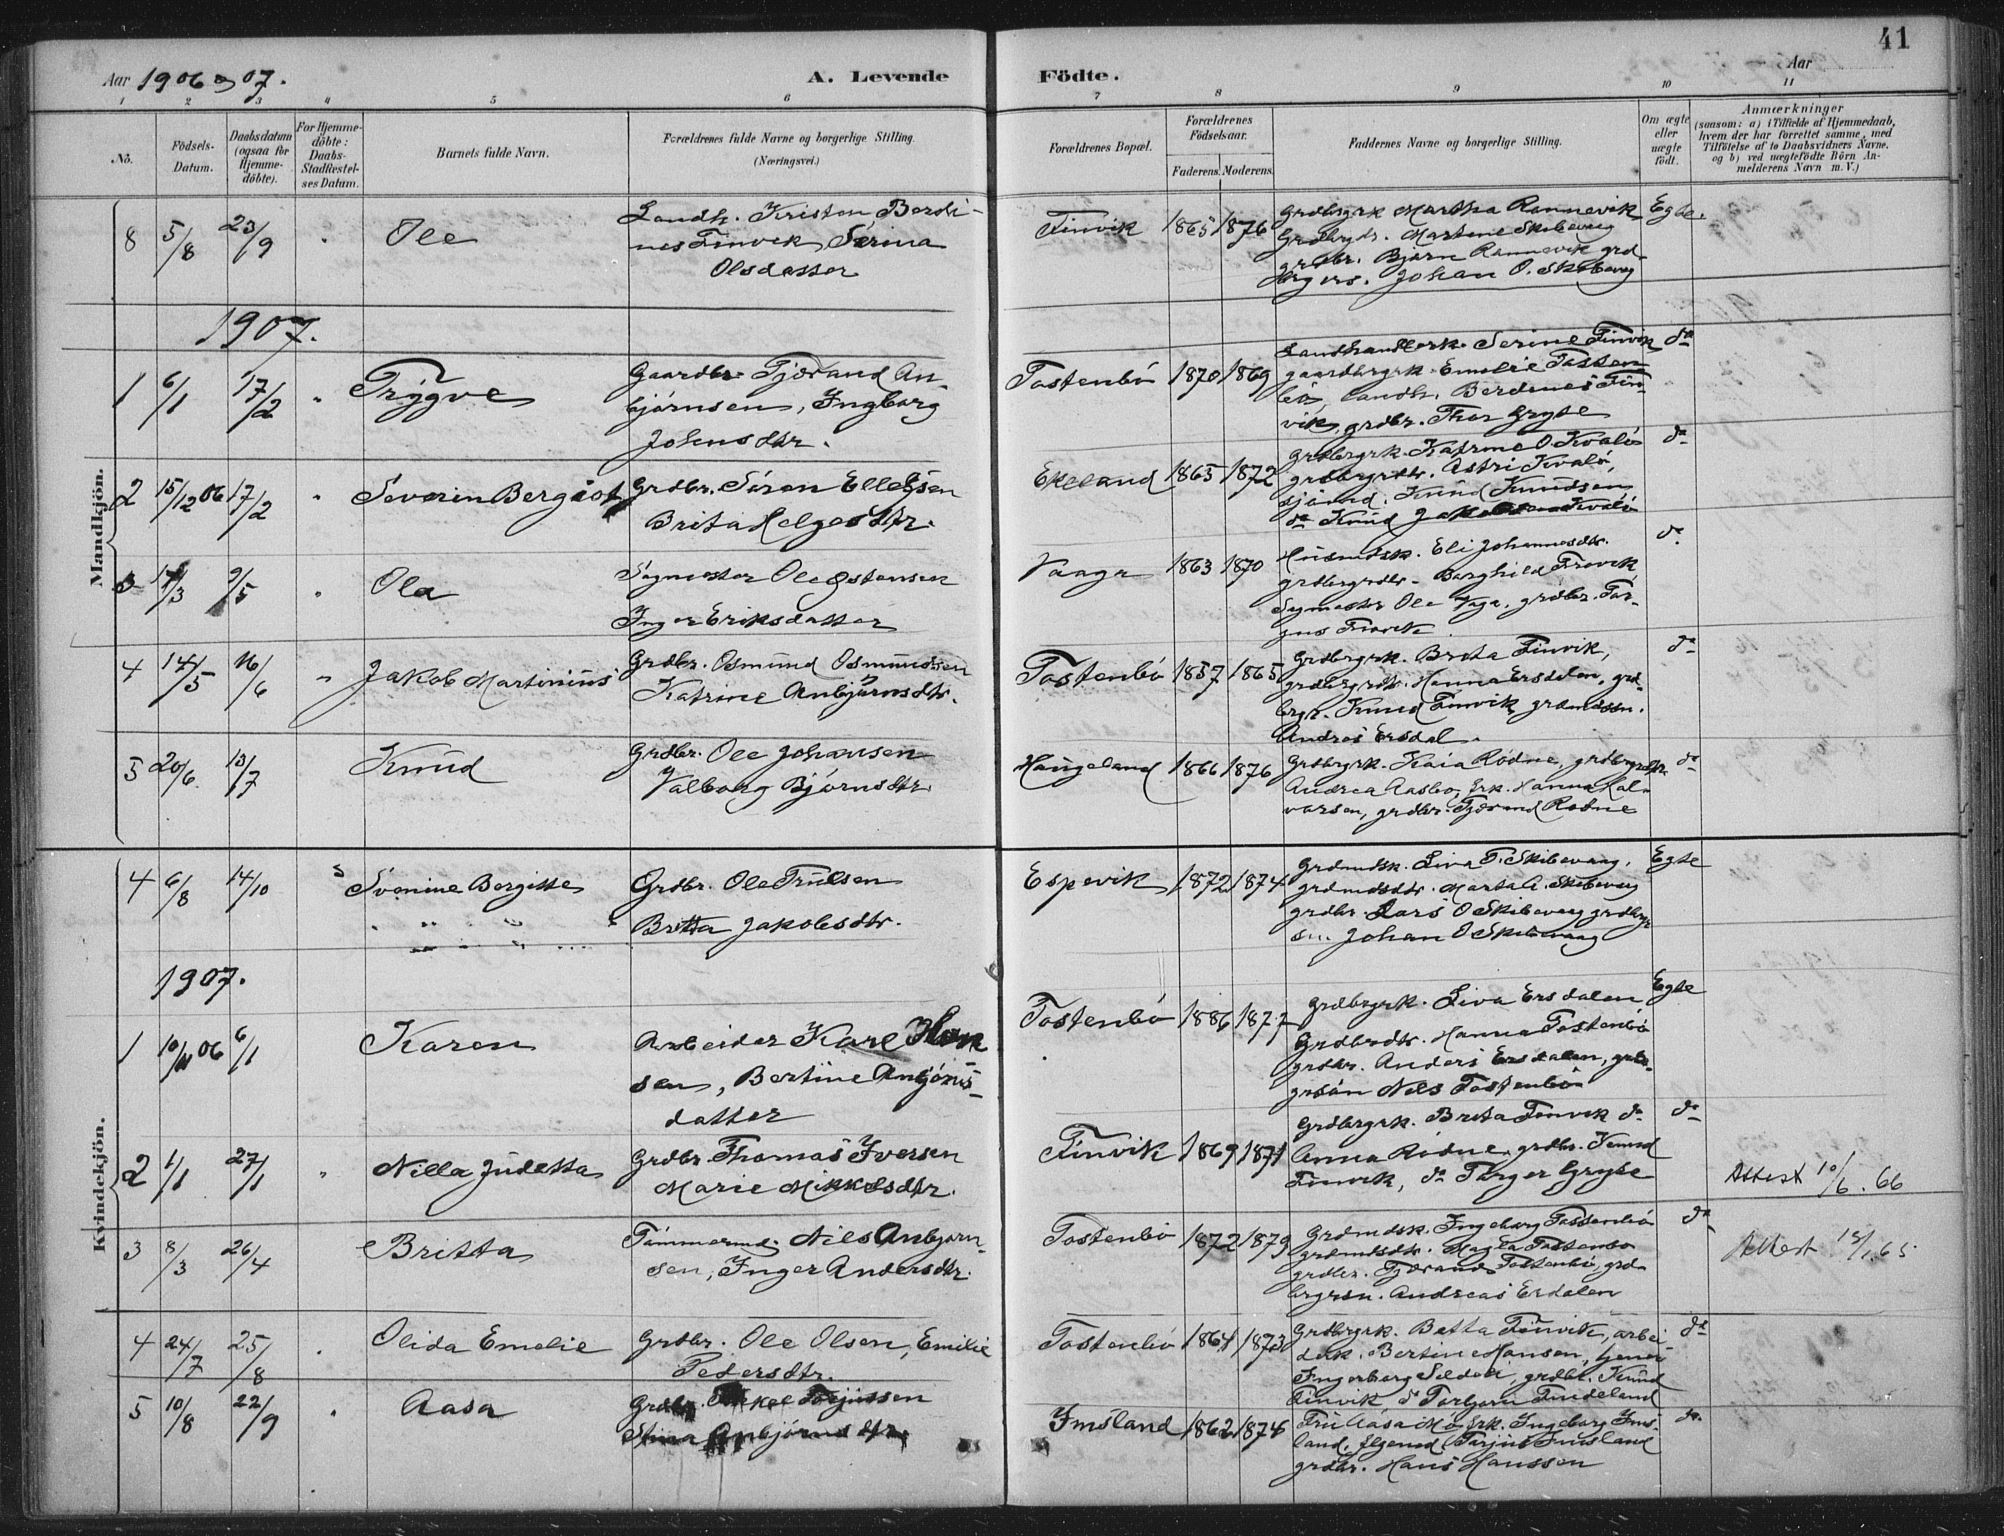 41
Aar 1906 & 07.
A. Levende Födte.
Aar
1 2 3 4 5 6 7 8 9 10 11
No.
Födsels-Datum.
Daabsdatum (ogsaa for Hjemme-döbte).
For Hjemme-döbte: Daabs-Stadfæstel-ses Datum.
Barnets fulde Navn.
Forældrenes fulde Navne og borgerlige Stilling.
(Næringsvei.)
Forældrenes Bopæl.
Forældrenes Födselsaar.
Faderens. Moderens.
Faddernes Navne og borgerlige Stilling.
Om ægte eller uægte födt.
Anmærkninger
(saasom: a) i Tilfælde af Hjemmedaab,
hvem der har forrettet samme, med
Tilföielse af to Daabsvidners Navne,
og b) ved uægtefödte Börn An-
melderens Navn m. V.)
Mandkjön.
8 5/8 23/9 " Ole
Landh. Kristen Berdi-
nes Finvik, Serina
Olsdatter
Finvik 1865 1876
Grdbrgrk Martha Rannevik
Grdbrgdr. Martene Skibevaag
grdbr. Bjørn Rannevik grd-
brgrs. Johan O. Skibevaag
Egte.
1907.
1 6/1 17/2 " Trygve
Gaardbr. Tjerand An-
bjørnsen, Ingborg
Johnsdtr.
Tostenbö 1870 1869
Landhandlerk. Serine Finvik
gaardbrgrk. Emelie Tosten-
bö, landh. Berdines Fin-
vik, grdbr. Thor Gryte
do
2 15/12 06 17/2 " Severin Bergitof
Grdbr. Sören Ellefsen
Brita Helgesdtr.
Ekeland 1865 1872
Grdbrgrk. Katrine O. Kvalö
grdbrgrdtr. Astri Kvalö,
sjömd. Knud Knudsen
do Knud Jakobsen Kvalö
do
3 17/3 9/5 " Ola
Sagmester Ole Østensen
Inger Eriksdatter
Vaaga 1863 1870
Husmdsk. Eli Johannesdtr.
grdbrgrdtr. Borghild
Sagmester Ole Vaga, grdbr. Tor-
do
4 14/5 16/6 " Jakob Martinius
Grdbr. Osmund Osmundsen
Katrine Anbjørnsdtr.
Tostenbö 1857 1865
Grdbrgrk. Brita Finvik,
grdbrgrdtr. Hanna Ersdalen, grd-
brgr. Knud Finvik, grdmdssn.
Andres Ersdal.
do
5 20/6 13/7 Knud
Grdbr. Ole Johansen
Valborg Bjørnsdtr.
Haugeland 1866 1876
Grdbrgrk. Kaia Rødne, grdbrgrdtr.
Andrea Aasbo, frk. Hanna Hal-
varsen, grdbr. Tjerand Rødne
do
Kvindekjön.
4 6/8 14/10 Svenine Bergitte
Grdbr. Ole Trulsen
Britta Jakobsdtr.
Espevik 1872 1874
Grdmdsk. Siva T. Skibevaag,
grdmdsdtr. Marta A. Skibevaag
grdbr. Lars O Skibevaag grdbrgr
sn. Johan O Skibevaag
Egte
1907.
1 10/11 06 6/1 Karen
Arbeider Karl Han
sen, Bertine Anbjørns-
datter
Tostenbö 1886 1877
Grdbrgrk. Siva Ersdalen
Grdbrdtr. Hanna Tostenbö
grdbr. Anders Ersdalen, grdbr-
grsön Nils Tostenbö
Egte
2 1/1 27/1 " Nilla Judetta
Grdbr. Thomas Iversen
Marie Mikkelsdtr.
Finvik 1869 1871
Grdbrgrk. Brita Finvik do
Anna Rødne, grdbr. Knud
Finvik, do Torger Gryte
do
Attest 10/6. 66
3 8/3 26/4 Britta
Tømmermd. Nils Anbjørn-
sen, Inger Andersdtr.
Tostenbö 1872 1879
Grdmdsk. Ingeborg Tostenbö
grdmdsdtr. Magla Tostenbö
grdbr. Tjerand Tostenbö, grd-
brgrsn. Andreas Ersdalen
do
Attest 65
4 24/7 25/8 " Olida Emelie
Grdbr. Ole Olsen, Emilie
Pedersdtr.
Tostenbö 1864 1873
Grdbrgrk. Betta Finvik, arbei-
dsk. Bertine Hansen,
Ingerborg, grdbr. Knud
Finvik, do Torbjørn Findeland
do
5 10/8 22/9 " Aasa
Grdbr. Torjussen
Anbjørnsdtr.
Imsland 1862 1874
Fru Aasa, frk. Ingeborg Ims-
land, Torjus Imsland
grdbr. Hans Hanssen
do.